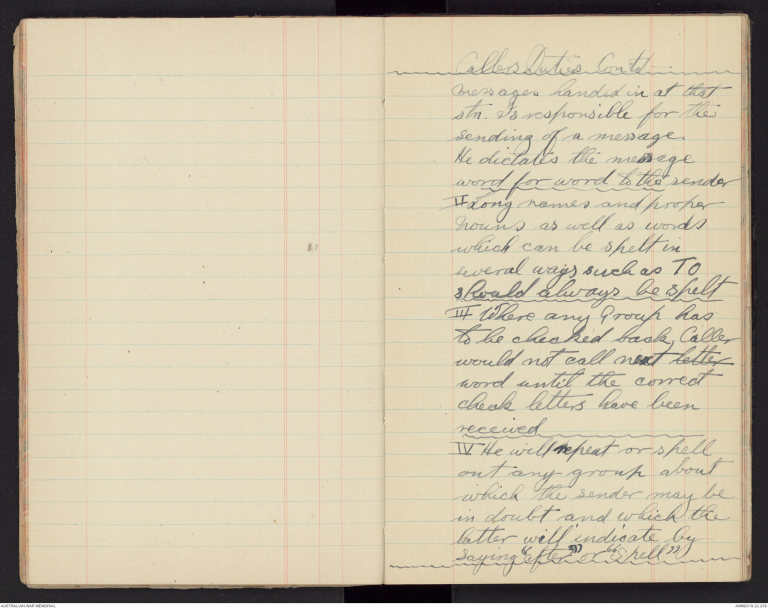 Callers Duties Contd
messages handed in at that
stn. is responsible for the
sending of a message.
He dictates the message
word for word to the sender
II Long names and proper
nouns as well as words
which can be spelt in
several ways such as TO
should always be spelt
III Where any Group has
to be checked back, Caller
would not call next letter
word until the correct
cheak letters have been
received
IV He will repeat or spell
out any group about
which the sender may be
in doubt and which the
latter will indicate by
saying "after" or "Spell"
AUSTRALIAN WAR MEMORIAL
AWM2019.22.259